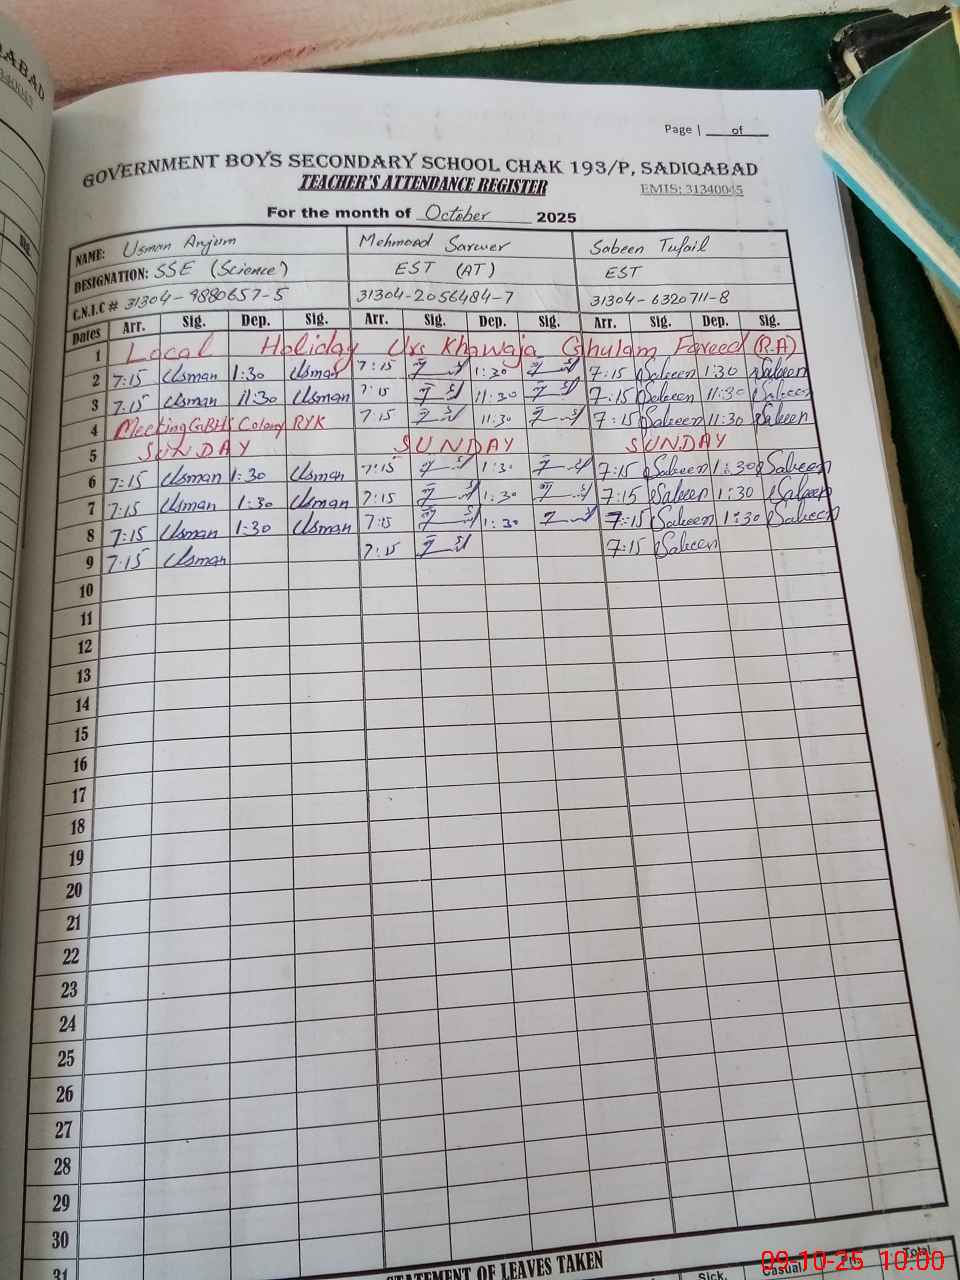 Page | ___of___
GOVERNMENT BOYS SECONDARY SCHOOL CHAK 193/P, SADIQABAD
TEACHER'S ATTENDANCE REGISTER
EMIS: 31340045
For the month of October 2025
NAME: Usman Anjum Mehmood Sarwer Sabeen Tufail
DESIGNATION: SSE (Science) EST (AT) EST
C.N.I.C # 31304-9880657-5 31304-2056484-7 31304-6320711-8
Dates Arr. Sig. Dep. Sig. Arr. Sig. Dep. Sig. Arr. Sig. Dep. Sig.
1 Local Holiday Urs Khawaja Ghulam Fareed (R.A)
2 7:15 Usman 1:30 Usman 7:15 1:30 7:15 Sabeen 1:30 Sabeen
3 7:15 Usman 11:30 Usman 7:15 11:30 7:15 Sabeen 11:30 Sabeen
4 Meeting GBHS Colony RYK 7:15 11:30 7:15 Sabeen 11:30 Sabeen
5 SUNDAY SUNDAY SUNDAY
6 7:15 Usman 1:30 Usman 7:15 1:30 7:15 Sabeen 1:30 Sabeen
7 7:15 Usman 1:30 Usman 7:15 1:30 7:15 Sabeen 1:30 Sabeen
8 7:15 Usman 1:30 Usman 7:15 1:30 7:15 Sabeen 1:30 Sabeen
9 7:15 Usman 7:15 7:15 Sabeen
10
11
12
13
14
15
16
17
18
19
20
21
22
23
24
25
26
27
28
29
30
31
STATEMENT OF LEAVES TAKEN
Sick. Casual. Total
09-10-25 10:00